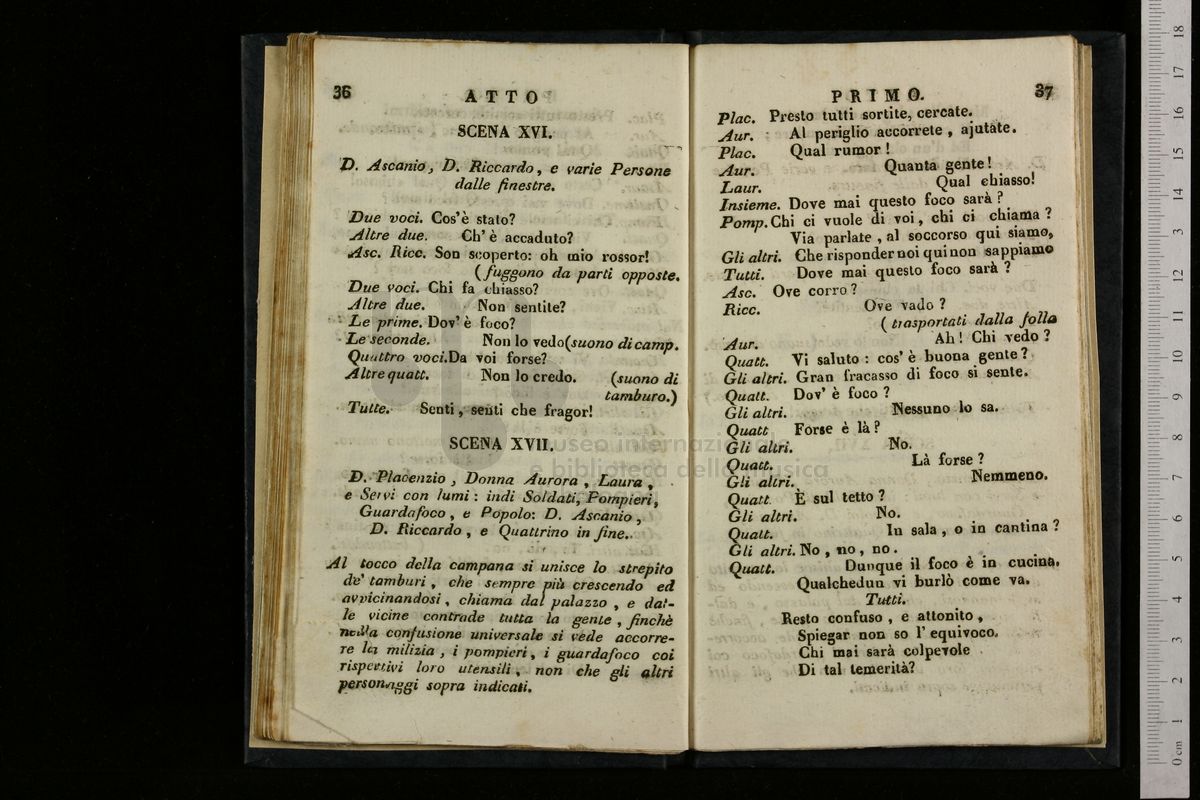 36
ATTO
SCENA XVI.
D. Ascanio, D. Riccardo, e varie Persone
dalle finestre.
Due voci. Cos'è stato?
Altre due. Ch'è accaduto?
Asc. Ricc. Son scoperto: oh mio rossor!
(fuggono da parti opposte.
Due voci. Chi fa chiasso?
Altre due. Non sentite?
Le prime. Dov'è foco?
Le seconde. Non lo vedo (suono di camp.
Quattro voci. Da voi forse?
Altre quatt. Non lo credo. (suono di
tamburo.)
Tutte. Senti, senti che fragor!
SCENA XVII.
D. Placenzio, Donna Aurora, Laura,
e Servi con lumi: indi Soldati, Pompieri,
Guardafoco, e Popolo: D. Ascanio,
D. Riccardo, e Quattrino in fine.
Al tocco della campana si unisce lo strepito
de' tamburi, che sempre più crescendo ed
avvicinandosi, chiama dal palazzo, e dal-
le vicine contrade tutta la gente, finchè
nella confusione universale si vede accorre-
re la milizia, i pompieri, i guardafoco coi
rispettivi loro utensili, non che gli altri
personaggi sopra indicati.
PRIMO.
37
Plac. Presto tutti sortite, cercate.
Aur. Al periglio accorrete, ajutate.
Plac. Qual rumor!
Aur. Quanta gente!
Laur. Qual chiasso!
Insieme. Dove mai questo foco sarà?
Pomp. Chi ci vuole di voi, chi ci chiama?
Via parlate, al soccorso qui siamo,
Gli altri. Che risponder noi qui non sappiamo
Tutti. Dove mai questo foco sarà?
Asc. Ove corro?
Ricc. Ove vado?
(trasportati dalla folla
Aur. Ah! Chi vedo?
Quatt. Vi saluto: cos'è buona gente?
Gli altri. Gran fracasso di foco si sente.
Quatt. Dov'è foco?
Gli altri. Nessuno lo sa.
Quatt Forse è là?
Gli altri. No.
Quatt. Là forse?
Gli altri. Nemmeno.
Quatt. È sul tetto?
Gli altri. No.
Quatt. In sala, o in cantina?
Gli altri. No, no, no.
Quatt. Dunque il foco è in cucina.
Qualchedun vi burlò come va.
Tutti.
Resto confuso, e attonito,
Spiegar non so l'equivoco.
Chi mai sarà colpevole
Di tal temerità?
museo internazionale
e biblioteca della musica
0 cm 1 2 3 4 5 6 7 8 9 10 11 12 13 14 15 16 17 18